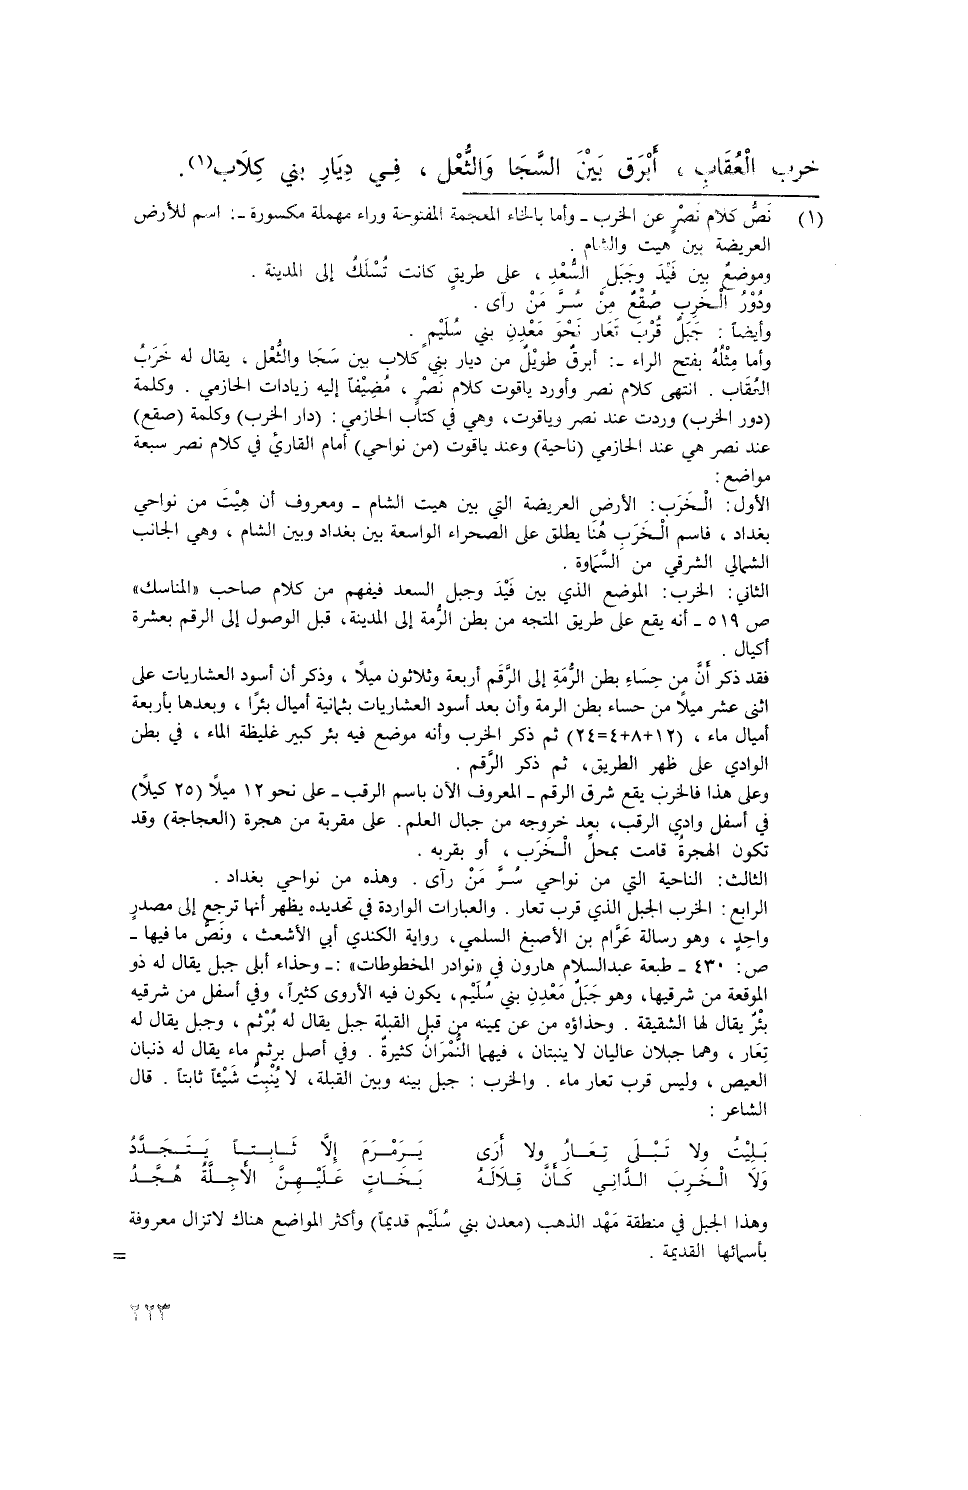 خرب الْعُقَابِ ، أَبْرَق بَيْنَ السَّجَا وَالثُّعْل ، فِي دِيَارِ بني كِلَاب(١).
(١) نَصُّ كلام نَصْرٍ عن الخرب ـ وأما بالخاء المعجمة المفتوحة وراء مهملة مكسورة ـ: اسم للأرض
العريضة بين هيت والشام .
وموضعٌ بين فَيْدَ وجَبَلِ السُّعْدِ ، على طريقٍ كانت تُسْلَكُ إلى المدينة .
ودُوْرُ الْخَرِبِ صُقْعٌ مِنْ سُرَّ مَنْ رآى .
وأيضاً : جَبَلٌ قُرْبَ تَعَار نَحْوَ مَعْدِنِ بني سُلَيْمٍ .
وأما مِثْلُهُ بفتح الراء ـ: أبرقٌ طويْلٌ من ديار بني كلاب بين سَجَا والثُّعْل ، يقال له خَرَبُ
العُقَاب . انتهى كلام نصر وأورد ياقوت كلام نَصْرٍ ، مُضِيْفاً إليه زيادات الحازمي . وكلمة
(دور الخرب) وردت عند نصر وياقوت، وهي في كتاب الحازمي : (دار الخرب) وكلمة (صقع)
عند نصر هي عند الحازمي (ناحية) وعند ياقوت (من نواحي) أمام القارئ في كلام نصر سبعة
مواضع:
الأول: الْخَرَب: الأرض العريضة التي بين هيت الشام ـ ومعروف أن هِيْتَ من نواحي
بغداد ، فاسم الْخَرَبِ هُنَا يطلق على الصحراء الواسعة بين بغداد وبين الشام ، وهي الجانب
الشمالي الشرقي من السَّمَاوة .
الثاني: الخرب: الموضع الذي بين فَيْدَ وجبل السعد فيفهم من كلام صاحب «المناسك»
ص ٥١٩ ـ أنه يقع على طريق المتجه من بطن الرُّمة إلى المدينة، قبل الوصول إلى الرقم بعشرة
أكيال .
فقد ذكر أَنَّ من حِسَاءِ بطن الرُّمَةِ إلى الرَّقَم أربعة وثلاثون ميلاً ، وذكر أن أسود العشاريات على
اثنى عشر ميلاً من حساء بطن الرمة وأن بعد أسود العشاريات بثمانية أميال بئرًا ، وبعدها بأربعة
أميال ماء ، (١٢+٨+٤=٢٤) ثم ذكر الخرب وأنه موضع فيه بئر كبير غليظة الماء ، في بطن
الوادي على ظهر الطريق، ثم ذكر الرَّقم .
وعلى هذا فالخرب يقع شرق الرقم ـ المعروف الآن باسم الرقب ـ على نحو ١٢ ميلاً (٢٥ كيلاً)
في أسفل وادي الرقب، بعد خروجه من جبال العلم. على مقربة من هجرة (العجاجة) وقد
تكون الهجرةُ قامت بمحلِّ الْخَرَب ، أو بقربه .
الثالث: الناحية التي من نواحي سُرَّ مَنْ رآى . وهذه من نواحي بغداد .
الرابع: الخرب الجبل الذي قرب تعار . والعبارات الواردة في تحديده يظهر أنها ترجع إلى مصدرٍ
واحِدٍ ، وهو رسالة عَرَّام بن الأصبغ السلمي، رواية الكندي أبي الأشعث ، ونَصُّ ما فيها ـ
ص: ٤٣٠ ـ طبعة عبدالسلام هارون في «نوادر المخطوطات» :ـ وحذاء أبلى جبل يقال له ذو
الموقعة من شرقيها، وهو جَبَلُ مَعْدِنِ بني سُلَيْم، يكون فيه الأروى كثيراً، وفي أسفل من شرقيه
بئْرٌ يقال لها الشقيقة . وحذاؤه من عن يمينه من قبل القبلة جبل يقال له بُرْثم ، وجبل يقال له
تِعَار ، وهما جبلان عاليان لا ينبتان ، فيهما النُّمْرَانُ كثيرةٌ . وفي أصل برثم ماء يقال له ذنبان
العيص ، وليس قرب تعار ماء . والخرب : جبل بينه وبين القبلة، لا يُنْبِتُ شَيْئاً ثابتاً . قال
الشاعر :
بَلِيْتُ ولا تَبْلَى تِعَارُ ولا أَرَى يَرَمْرَمَ إِلَّا ثَابِتاً يَتَجَدَّدُ
وَلَا الْخَرِبَ الدَّانِي كَأَنَّ قِلَالَهُ بَخَاتٍ عَلَيْهِنَّ الأَجِلَّةُ هُجَّدُ
وهذا الجبل في منطقة مَهْد الذهب (معدن بني سُلَيْم قديماً) وأكثر المواضع هناك لاتزال معروفة
بأسمائها القديمة .
=
٢٢٣